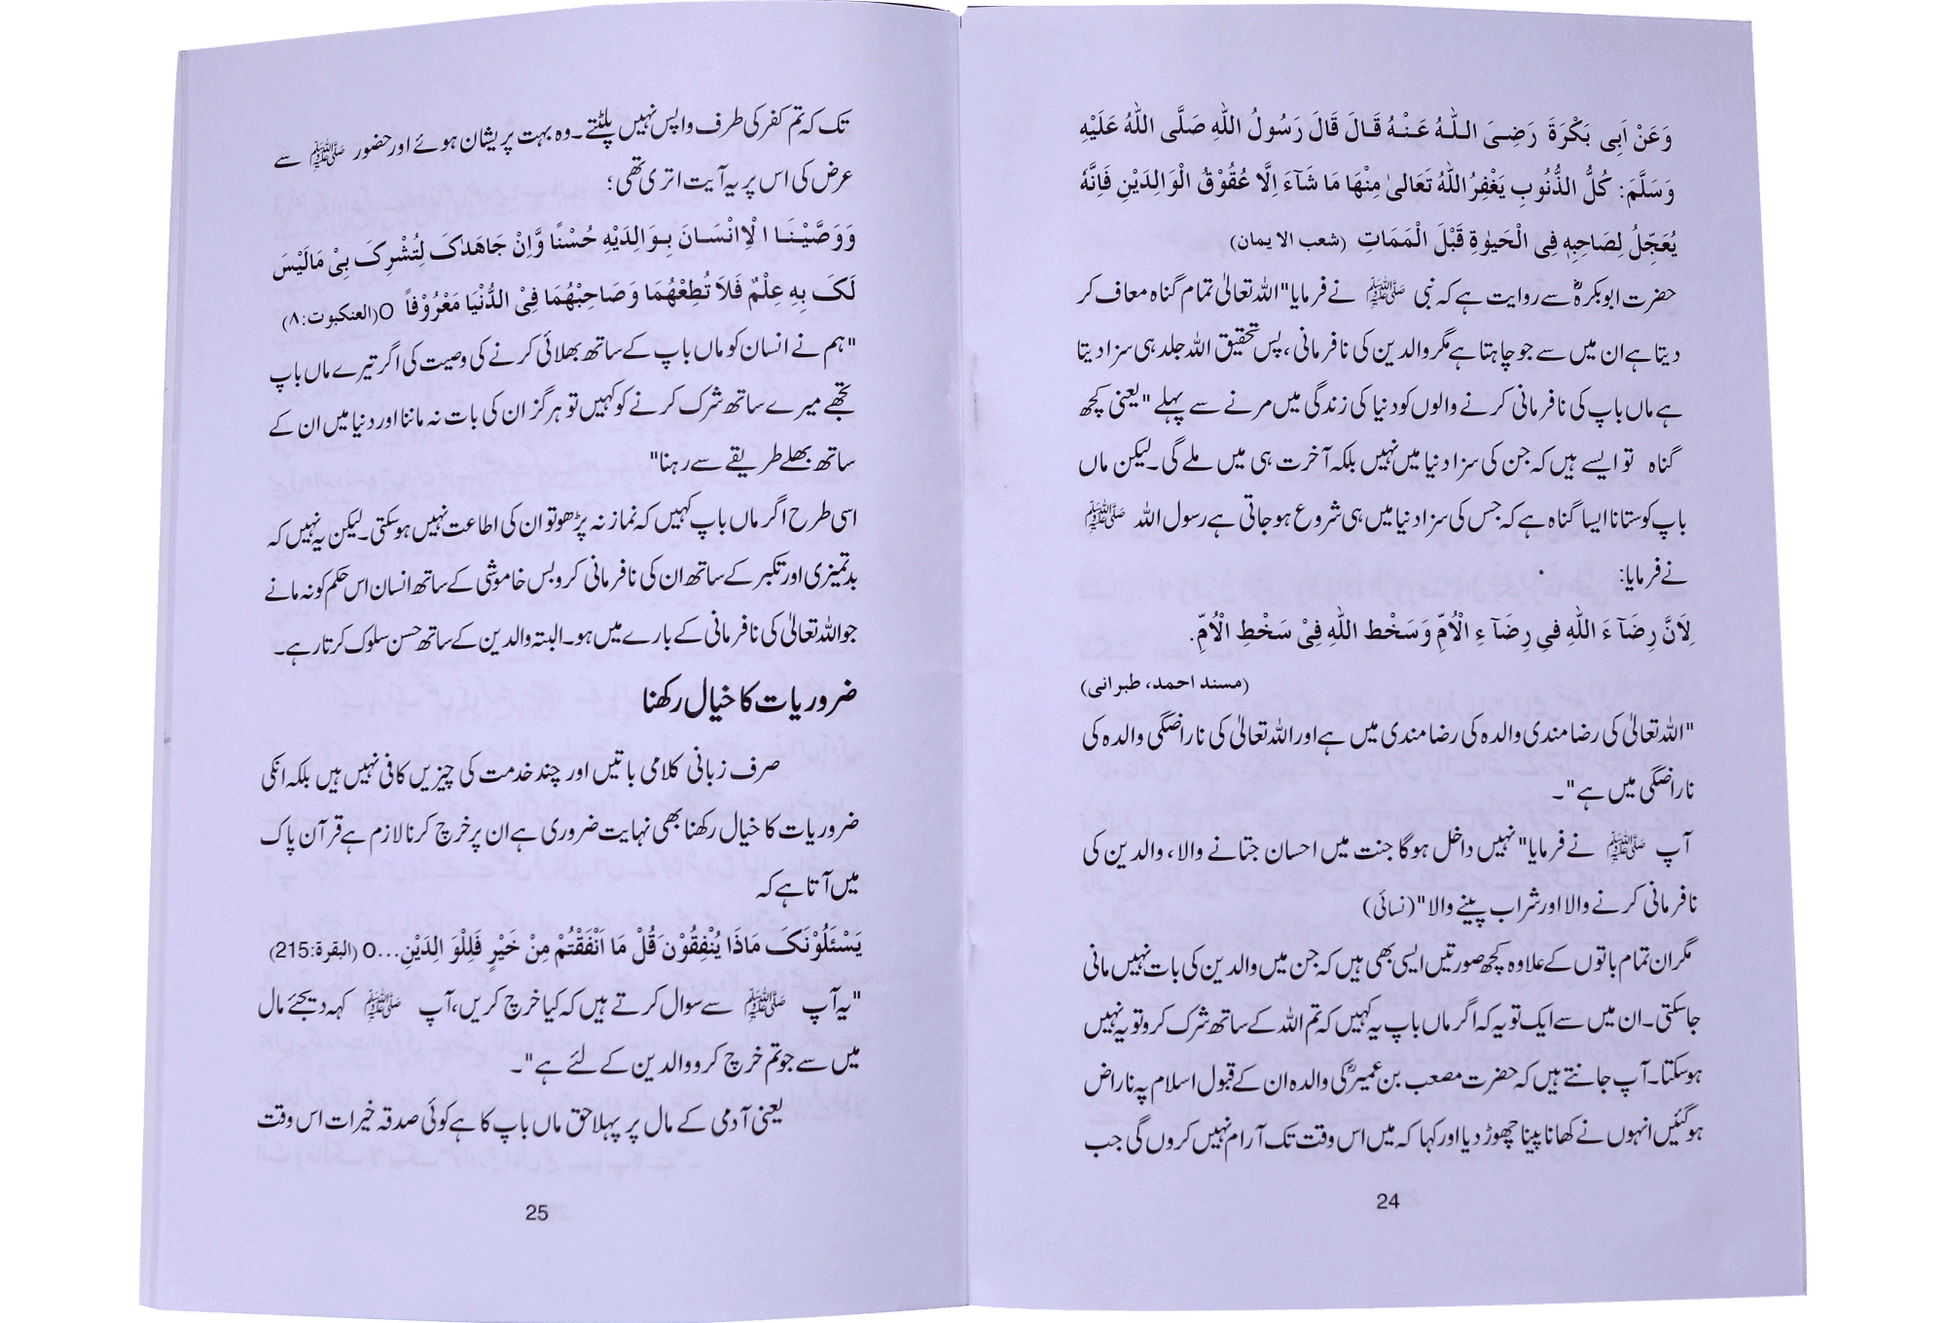 وَعَنْ اَبِی بَکْرَةَ رَضِیَ اللّٰهُ عَنْهُ قَالَ قَالَ رَسُولُ اللّٰهِ صَلَّى اللّٰهُ عَلَيْهِ
وَسَلَّمَ: کُلُّ الذُّنُوبِ یَغْفِرُ اللّٰهُ تَعَالیٰ مِنْهَا مَا شَآءَ اِلَّا عُقُوْقُ الْوَالِدَیْنِ فَاِنَّهٗ
یُعَجِّلُ لِصَاحِبِهٖ فِی الْحَیوٰةِ قَبْلَ الْمَمَاتِ (شعب الایمان)
حضرت ابوبکرہؓ سے روایت ہے کہ نبی ﷺ نے فرمایا"اللہ تعالیٰ تمام گناہ معاف کر
دیتا ہے ان میں سے جو چاہتا ہے مگر والدین کی نافرمانی، پس تحقیق اللہ جلد ہی سزا دیتا
ہے ماں باپ کی نافرمانی کرنے والوں کو دنیا کی زندگی میں مرنے سے پہلے" یعنی کچھ
گناہ تو ایسے ہیں کہ جن کی سزا دنیا میں نہیں بلکہ آخرت ہی میں ملے گی۔ لیکن ماں
باپ کو ستانا ایسا گناہ ہے کہ جس کی سزا دنیا میں ہی شروع ہو جاتی ہے رسول اللہ ﷺ
نے فرمایا:
لِاَنَّ رِضَآءَ اللّٰهِ فِی رِضَآءِ الْاُمِّ وَسَخْط اللّٰهِ فِیْ سَخْطِ الْاُمِّ.
(مسند احمد، طبرانی)
"اللہ تعالیٰ کی رضا مندی والدہ کی رضا مندی میں ہے اور اللہ تعالیٰ کی ناراضگی والدہ کی
ناراضگی میں ہے"۔
آپ ﷺ نے فرمایا"نہیں داخل ہوگا جنت میں احسان جتانے والا، والدین کی
نافرمانی کرنے والا اور شراب پینے والا" (نسائی)
مگر ان تمام باتوں کے علاوہ کچھ صورتیں ایسی بھی ہیں کہ جن میں والدین کی بات نہیں مانی
جاسکتی۔ ان میں سے ایک تو یہ کہ اگر ماں باپ یہ کہیں کہ تم اللہ کے ساتھ شرک کرو تو یہ نہیں
ہوسکتا۔ آپ جانتے ہیں کہ حضرت مصعب بن عمیرؓ کی والدہ ان کے قبول اسلام پہ ناراض
ہوگئیں انہوں نے کھانا پینا چھوڑ دیا اور کہا کہ میں اس وقت تک آرام نہیں کروں گی جب
24
تک کہ تم کفر کی طرف واپس نہیں پلٹتے۔ وہ بہت پریشان ہوئے اور حضور ﷺ سے
عرض کی اس پر یہ آیت اتری تھی؛
وَوَصَّیْنَا الْاِنْسَانَ بِوَالِدَیْهِ حُسْنًا وَّاِنْ جَاهَدٰکَ لِتُشْرِکَ بِیْ مَالَیْسَ
لَکَ بِهِ عِلْمٌ فَلاَ تُطِعْهُمَا وَصَاحِبْهُمَا فِیْ الدُّنْیَا مَعْرُوْفاً O(العنکبوت:۸)
"ہم نے انسان کو ماں باپ کے ساتھ بھلائی کرنے کی وصیت کی اگر تیرے ماں باپ
تجھے میرے ساتھ شرک کرنے کو کہیں تو ہرگز ان کی بات نہ ماننا اور دنیا میں ان کے
ساتھ بھلے طریقے سے رہنا"
اسی طرح اگر ماں باپ کہیں کہ نماز نہ پڑھو تو ان کی اطاعت نہیں ہوسکتی۔ لیکن یہ نہیں کہ
بدتمیزی اور تکبر کے ساتھ ان کی نافرمانی کرو بس خاموشی کے ساتھ انسان اس حکم کو نہ مانے
جو اللہ تعالیٰ کی نافرمانی کے بارے میں ہو۔ البتہ والدین کے ساتھ حسن سلوک کرتا رہے۔
ضروریات کا خیال رکھنا
صرف زبانی کلامی باتیں اور چند خدمت کی چیزیں کافی نہیں ہیں بلکہ انکی
ضروریات کا خیال رکھنا بھی نہایت ضروری ہے ان پر خرچ کرنا لازم ہے قرآن پاک
میں آتا ہے کہ
یَسْئَلُوْنَکَ مَاذَا یُنْفِقُوْنَ قُلْ مَا اَنْفَقْتُمْ مِنْ خَیْرٍ فَلِلْوَالِدَیْنِ...O (البقرة:215)
"یہ آپ ﷺ سے سوال کرتے ہیں کہ کیا خرچ کریں، آپ ﷺ کہہ دیجئے مال
میں سے جو تم خرچ کرو والدین کے لئے ہے"۔
یعنی آدمی کے مال پر پہلا حق ماں باپ کا ہے کوئی صدقہ خیرات اس وقت
25